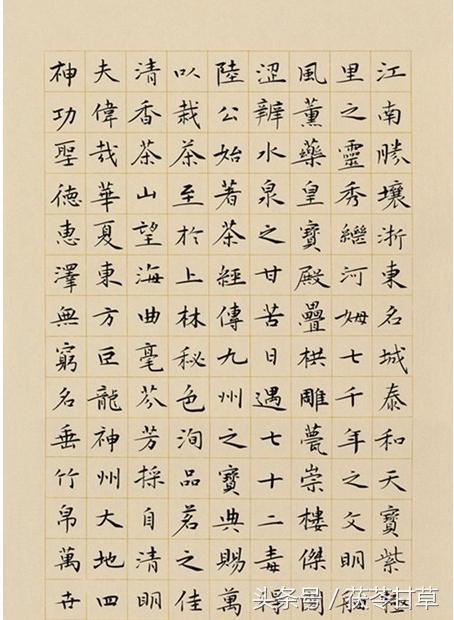 江南勝壤浙東名城泰和天寶紫極
里之靈秀繼河姆七千年之文明
風薰藥皇寶殿疊栱雕甍崇樓傑閣
澀辧水泉之甘苦日遇七十二毒得
陸公始著茶經傳九州之寶典賜萬
以栽茶至於上林秘色洵品茗之佳
清香茶山望海曲毫芬芳採自清明
夫偉哉華夏東方巨龍神州大地四
神功聖德惠澤無窮名垂竹帛萬世
头条号 / 茯苓甘草